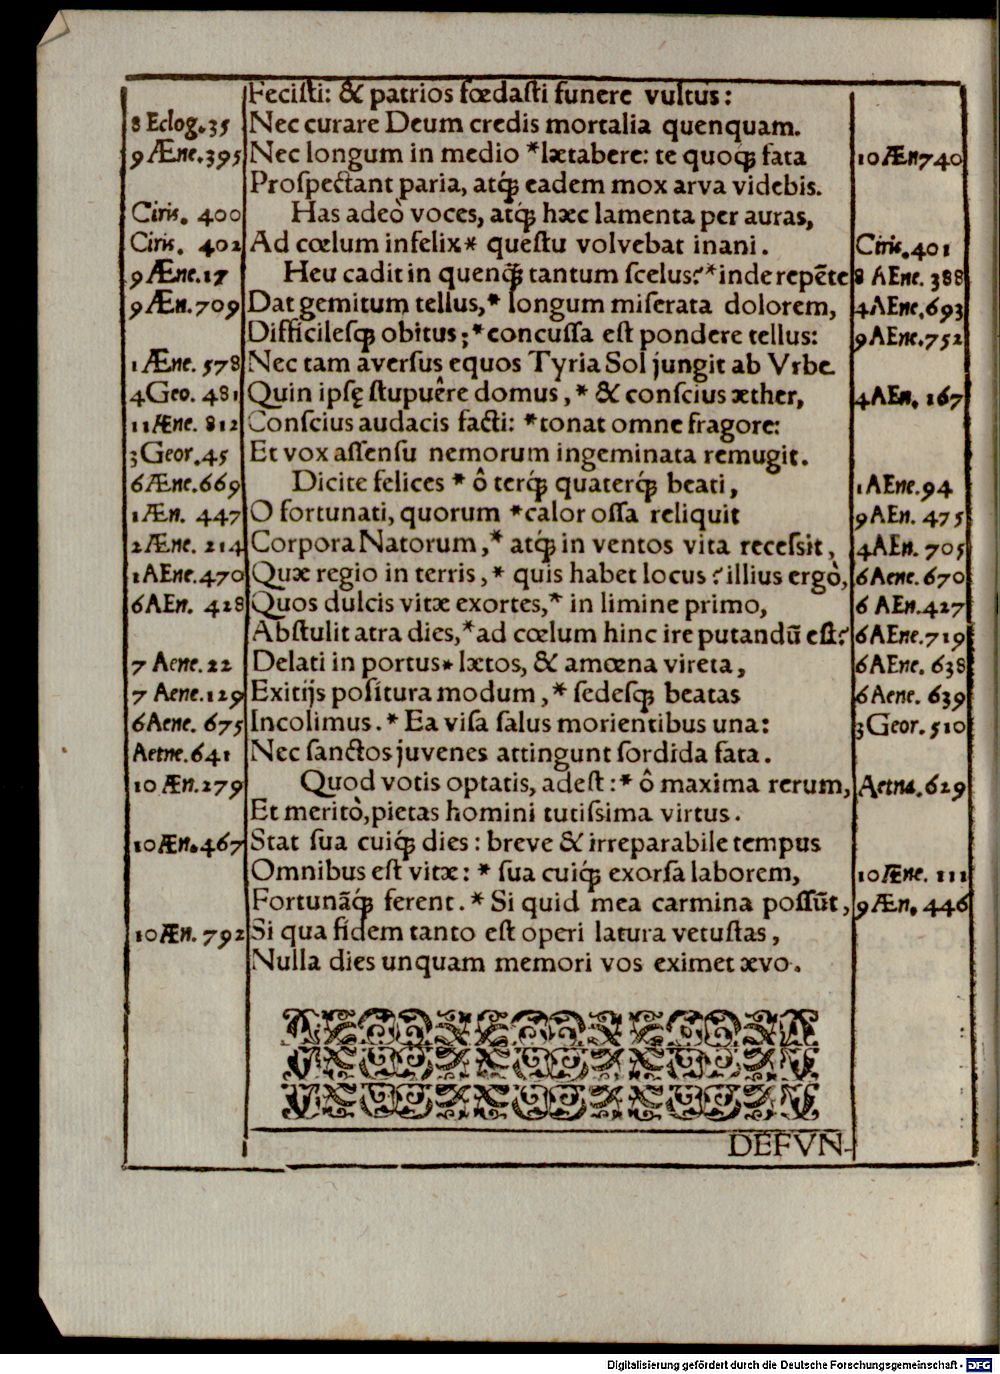 Fecisti: & patrios fœdasti funere vultus:
8 Eclog.35 Nec curare Deum credis mortalia quenquam.
9 Æne.395 Nec longum in medio *lætabere: te quoq́; fata 10 Æn 740
Prospectant paria, atq́; eadem mox arva videbis.
Ciris. 400 Has adeò voces, atq́; hæc lamenta per auras,
Ciris. 402 Ad cœlum infelix* questu volvebat inani. Ciris.401
9 Æne.17 Heu cadit in quenq́; tantum scelus? *inde repēte 8 AEne. 388
9 Æn.709 Dat gemitum tellus,* longum miserata dolorem, 4 AEne.693
Difficilesq; obitus; *concussa est pondere tellus: 9 AEne.752
1 Æne. 578 Nec tam aversus equos Tyria Sol jungit ab Vrbe
4 Geo. 481 Quin ipsę stupuêre domus, * & conscius æther, 4 AEn. 167
11 Æne. 812 Conscius audacis facti: *tonat omne fragore:
3 Geor.45 Et vox assensu nemorum ingeminata remugit.
6 Æne.669 Dicite felices * ô terq́; quaterq́; beati, 1 AEne.94
1 Æn. 447 O fortunati, quorum *calor ossa reliquit 9 AEn. 475
2 Æne. 214 Corpora Natorum,* atq́; in ventos vita recessit, 4 AEn. 705
1 AEne.470 Quæ regio in terris, * quis habet locus? illius ergò, 6 Aene. 670
6 AEn. 428 Quos dulcis vitæ exortes,* in limine primo, 6 AEn.427
Abstulit atra dies,*ad cœlum hinc ire putandū est? 6 AEne.719
7 Aene. 22 Delati in portus* lætos, & amœna vireta, 6 AEne. 638
7 Aene.129 Exitijs positura modum, * sedesq; beatas 6 Aene. 639
6 Aene. 675 Incolimus. * Ea visa salus morientibus una: 3 Geor. 510
Aetne.641 Nec sanctos juvenes attingunt sordida fata.
10 Æn.279 Quod votis optatis, adest: * ô maxima rerum, Aetna.629
Et meritò, pietas homini tutissima virtus.
10 Æn.467 Stat sua cuiq́; dies: breve & irreparabile tempus
Omnibus est vitæ: * sua cuiq́; exorsa laborem, 10 Æne. 111
Fortunāq́; ferent. * Si quid mea carmina possūt, 9 Æn. 446
10 Æn. 792 Si qua fidem tanto est operi latura vetustas,
Nulla dies unquam memori vos eximet ævo.
DEFVN-
Digitalisierung gefördert durch die Deutsche Forschungsgemeinschaft - DFG